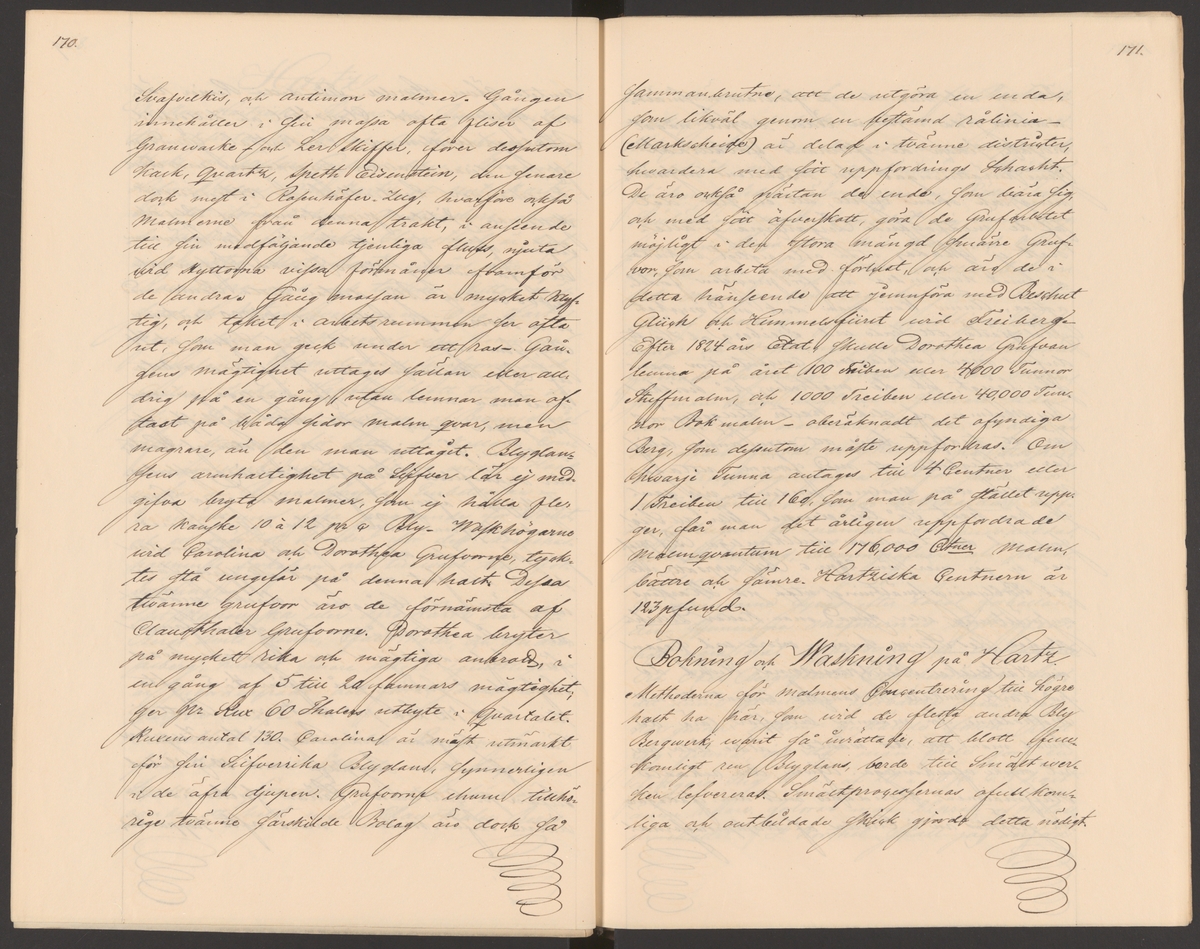 170.
Svafvelkis, och antimon malmer. Gången
innehåller i sin massa ofta fliser af
Grauwacke och Ler Skiffer, förer dessutom
Kalk, Qvartz, Speth Eisenstein, den senare
dock mest i Rosenhöfer-Zug, hvarföre också
Malmerne från denna trakt, i anseende
till sin medföljande tjenliga fluss, njuta
vid Hyttorna vissa förmåner framför
de andra. Gång massan är mycket klyf-
tig, och taket i arbetsrummen ser ofta
ut, som man geck under ett ras. Gån-
gens mägtighet uttages sällan eller all-
drig på en gång, utan lemnar man of-
tast på båda sidor malm qvar, men
magrare, än den man uttaget. Blyglan-
sens armhaltighet på Silfver lär ej med-
gifva bryta malmer, som ej hålla fle-
ra kanske 10 à 12 pr c Bly. Waskhögarne
vid Carolina och Dorothea Grufvorne, tyck-
tes stå ungefär på denna halt. Dessa
tvänne grufvor äro de förnämsta af
Clausthaler Grufvorne. Dorothea bryter
på mycket rika och mägtiga anbrod, i
en gång af 5 till 20 famnars mägtighet,
ger pr Kux 60 Thalers utbyte i Qvartalet.
Kuxens antal 130. Carolina är mäst utmärkt
för sin Silfverrika Blyglans, synnerligen
i de äfra djupen. Grufvorne ehuru tillhö-
rige tvänne särskilde Bolag äro dock så
171.
sammanbrutne, att de utgöra en enda,
som likväl genom en bestämd rålinia
(Markscheide) är delad i tvänne districter,
hvardera med sitt uppfordrings Schacht.
De äro också nästan de ende, som bära sig,
och med sitt äfverskott, göra de Grufarbetet
möjligt i den stora mängd smärre Gruf-
vor, som arbeta med förlust, och äro de i
detta hänseende att jemnföra med Beschert
Glück och Himmelsfürst vid Freiberg.
Efter 1824 års Etat, skulle Dorothea Grufvan
lemna på året 100 Treiben eller 4000 Tunnor
Stuffmalm, och 1000 Treiben eller 40,000 Tun-
nor Bok malm - oberäknadt det ofyndiga
Berg, som dessutom måste uppfordras. Om
hwarje Tunna antages till 4 Centner eller
1 Treiben till 160, som man på stället upp-
ger, får man det årligen uppfordrade
malmqvantum till 176,000 Ctner malm,
bättre och sämre. Hartziska Centnern är
123 pfund.
Bokning och Waskning på Hartz.
Methoderna för malmens Concentrering till högre
halt ha här, som vid de flesta andra Bly
Bergwerk, warit så inrättade, att blott full-
komligt ren Blyglans, borde till Smält wer-
ken lefvereras. Smältprocessernas ofullkom-
liga och outbildade skick gjorde detta nödigt.